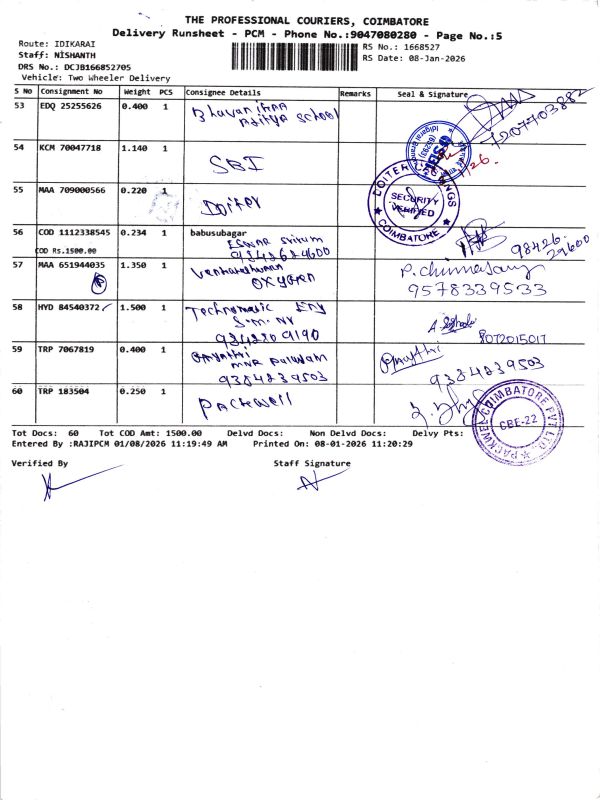 THE PROFESSIONAL COURIERS, COIMBATORE
Delivery Runsheet - PCM - Phone No.:9047080280 - Page No.:5
Route: IDIKARAI
Staff: NISHANTH
DRS No.: DCJB166852705
Vehicle: Two Wheeler Delivery
RS No.: 1668527
RS Date: 08-Jan-2026
S No Consignment No Weight PCS Consignee Details Remarks Seal & Signature
53 EDQ 25255626 0.400 1 Aditya School 7207703882
54 KCM 70047718 1.140 1 SBI
SBI
Idigarai Branch
55 MAA 709000566 0.220 1 Doiter
SECURITY
VERIFIED
COIMBATORE
56 COD 1112338545 0.234 1 babusubagar
COD Rs.1500.00
Eswar Sriram
9842629600
98426.
29600
57 MAA 651944035 1.350 1 Venkateshwaran
Oxygen
P. Chinnasamy
9578339533
58 HYD 84540372 1.500 1 Technomatic Eng
S.M. NY
9342209190
8072015017
59 TRP 7067819 0.400 1 Gayathri
MNR Palayam
9384239503
Gayathri
9384239503
60 TRP 183504 0.250 1 Packwell
PACKWEL COIMBATORE PVT LTD
CBE-22
Tot Docs: 60 Tot COD Amt: 1500.00 Delvd Docs: Non Delvd Docs: Delvy Pts:
Entered By :RAJIPCM 01/08/2026 11:19:49 AM Printed On: 08-01-2026 11:20:29
Verified By Staff Signature